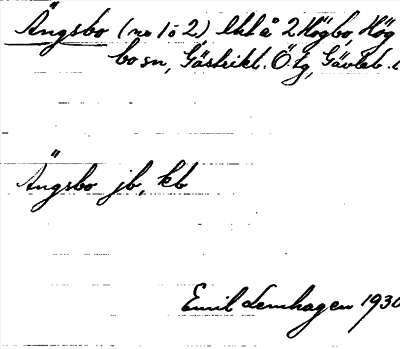 Ängsbo (nr 1 o 2) lht å 2 Högbo, Hög
bo sn, Gästrikl. Ö. tg, Gävleb. l
Ängsbo jb, kb
Emil Lemhagen 1930